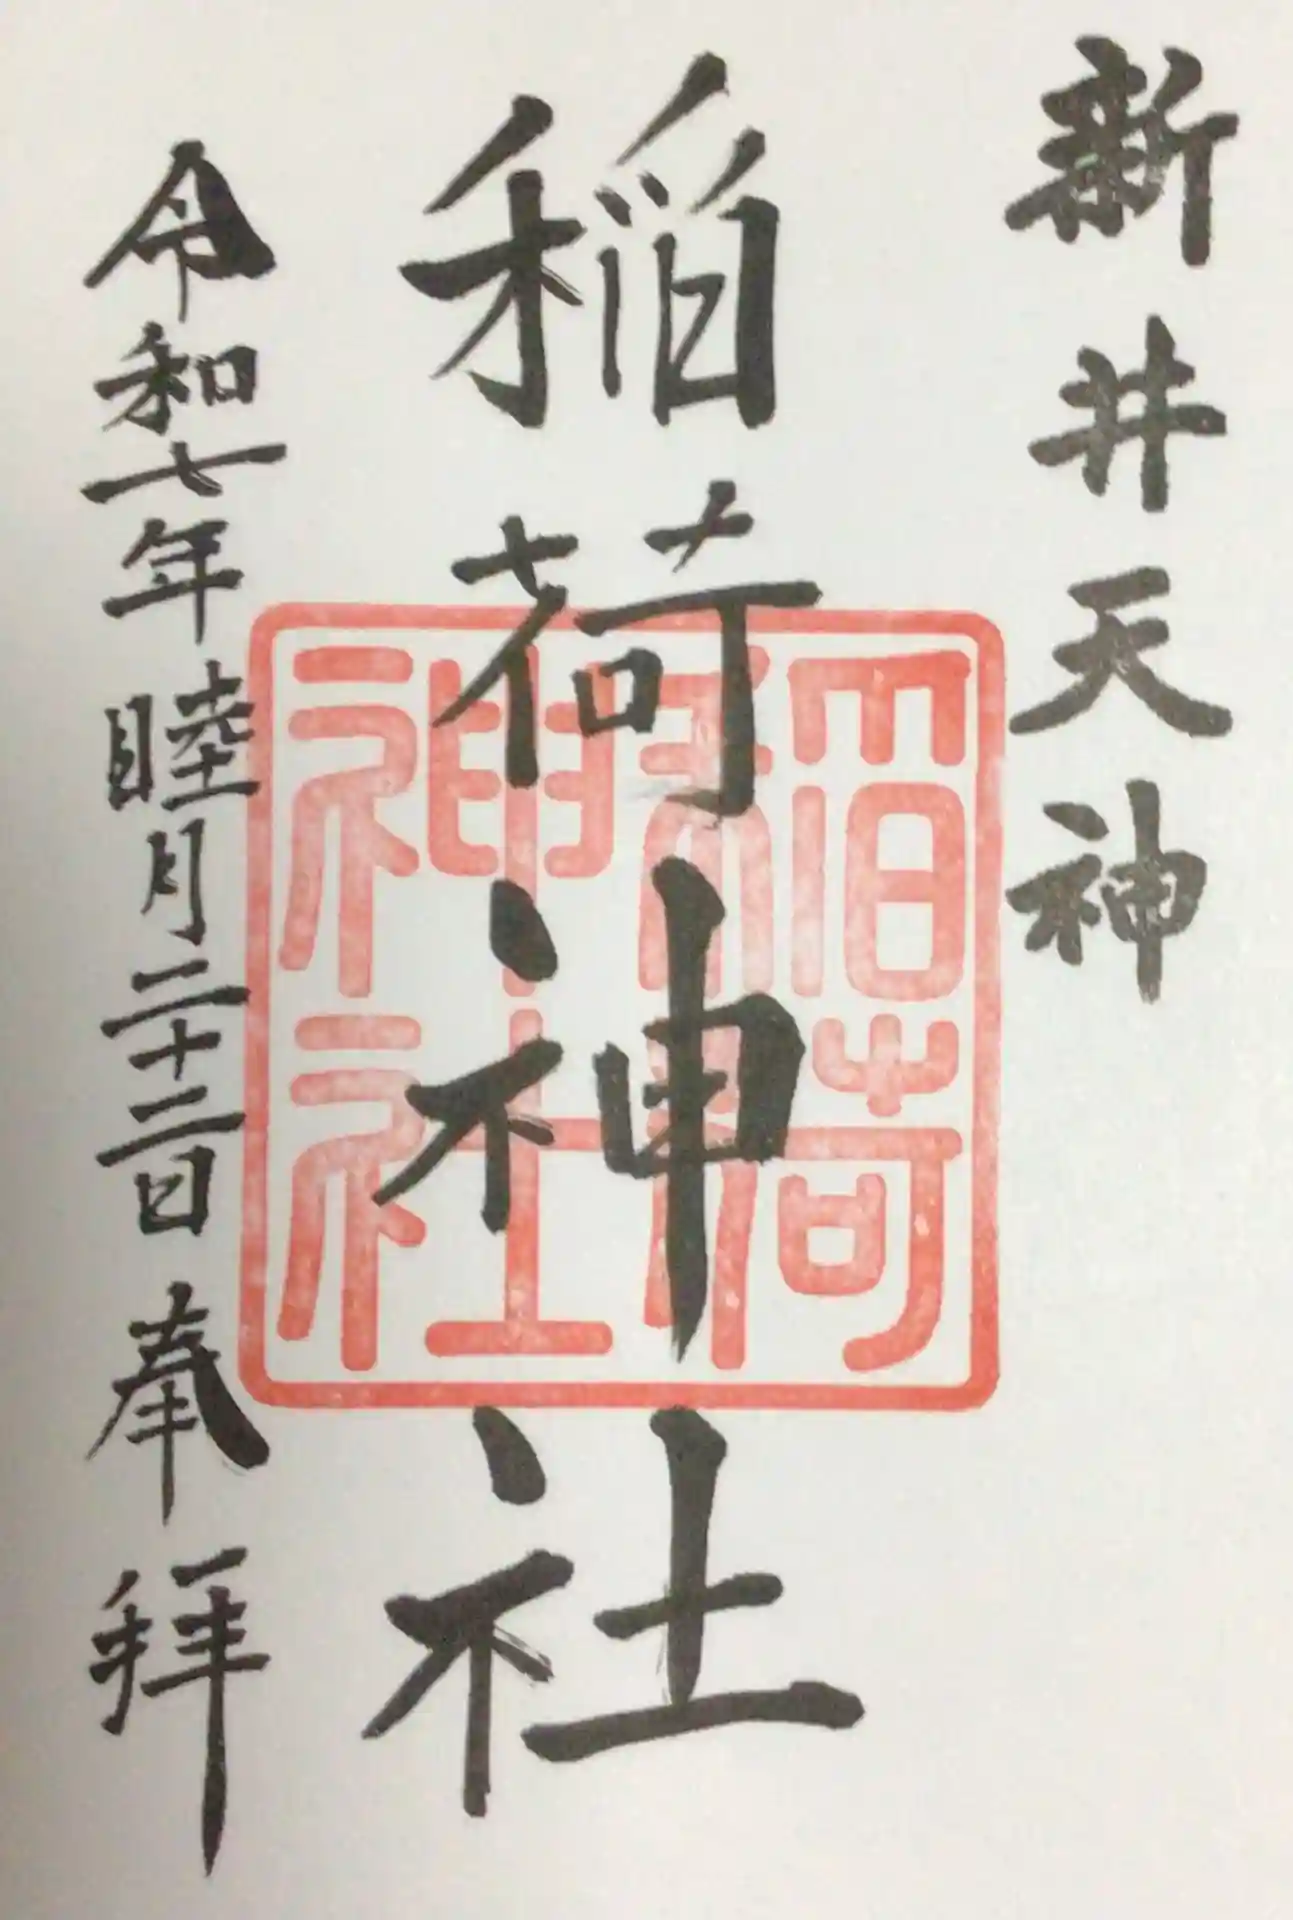 新井天神
稲荷神社
稲荷
神社
令和七年睦月二十二日奉拝